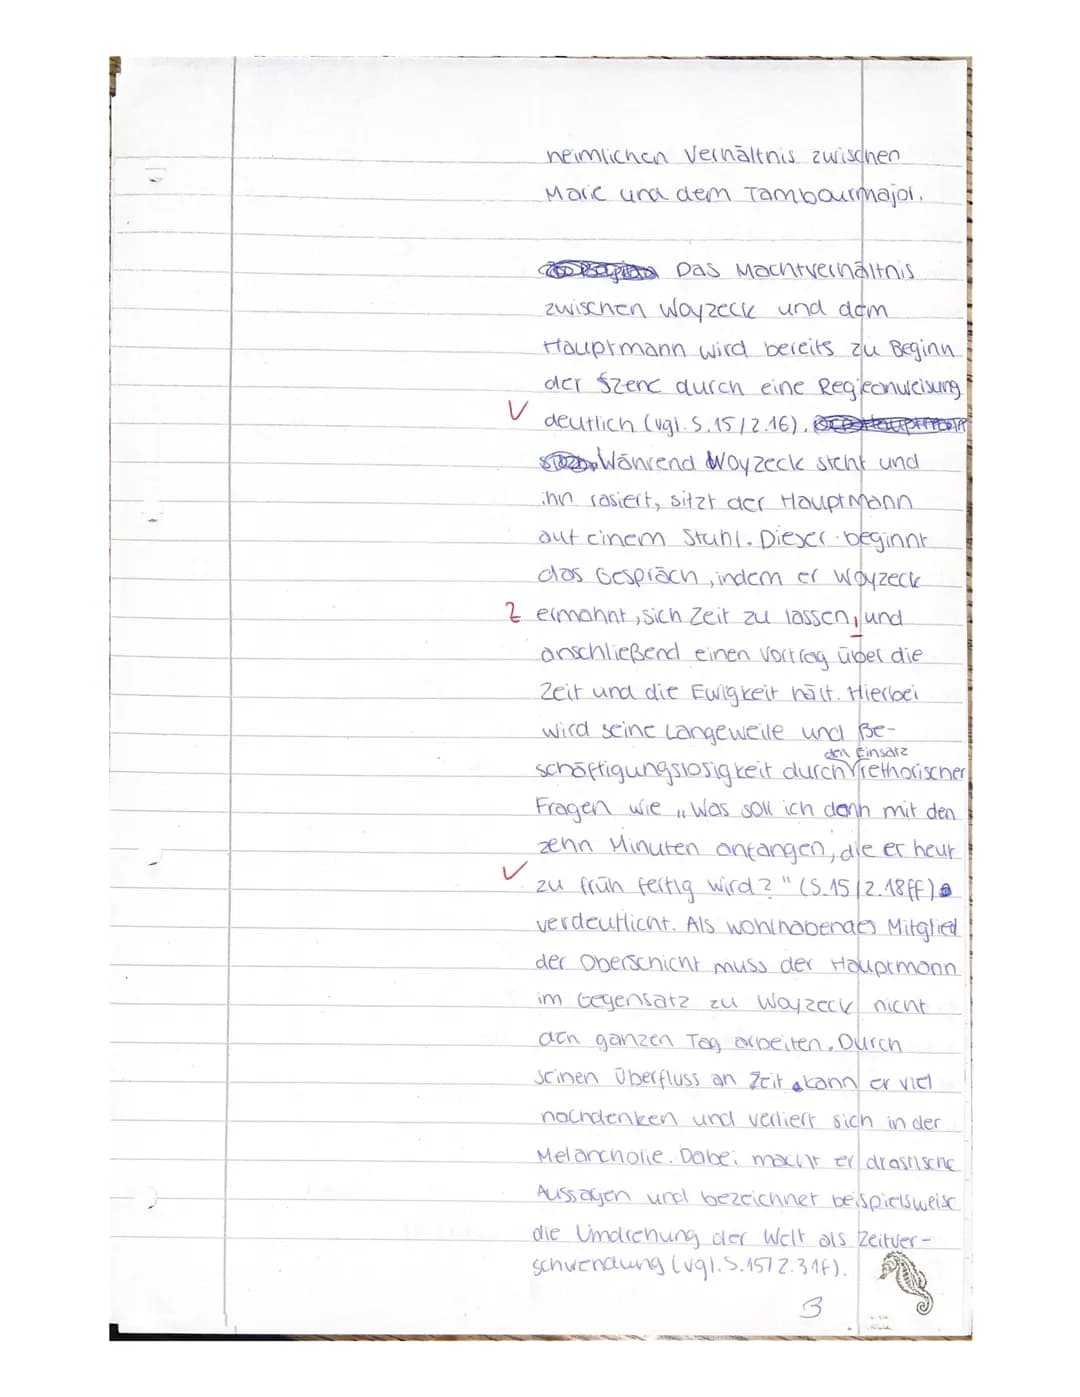 heimlichen Verhältnis zwischen
Marie und dem Tambourmajor.
Das Machtverhältnis
zwischen Woyzeck und dem
Hauptmann wird bereits zu Beginn
der Szene durch eine Regieanweisung
√ deutlich (vgl. S. 15 / Z. 16).
Während Woyzeck steht und
ihn rasiert, sitzt der Hauptmann
auf einem Stuhl. Dieser beginnt
das Gespräch, indem er Woyzeck
Z ermahnt, sich Zeit zu lassen, und
anschließend einen Vortrag über die
Zeit und die Ewigkeit hält. Hierbei
wird seine Langeweile und Be-
den Einsatz
schäftigungslosigkeit durch rethorischer
Fragen wie „Was soll ich denn mit den
zehn Minuten anfangen, die er heut
√ zu früh fertig wird?" (S. 15 / Z. 18ff)
verdeutlicht. Als wohlhabendes Mitglied
der Oberschicht muss der Hauptmann
im Gegensatz zu Woyzeck nicht
den ganzen Tag arbeiten. Durch
seinen Überfluss an Zeit kann er viel
nachdenken und verliert sich in der
Melancholie. Dabei macht er drastische
Aussagen und bezeichnet beispielsweise
die Umdrehung der Welt als Zeitver-
schwendung (vgl. S. 15 / Z. 31f).
3